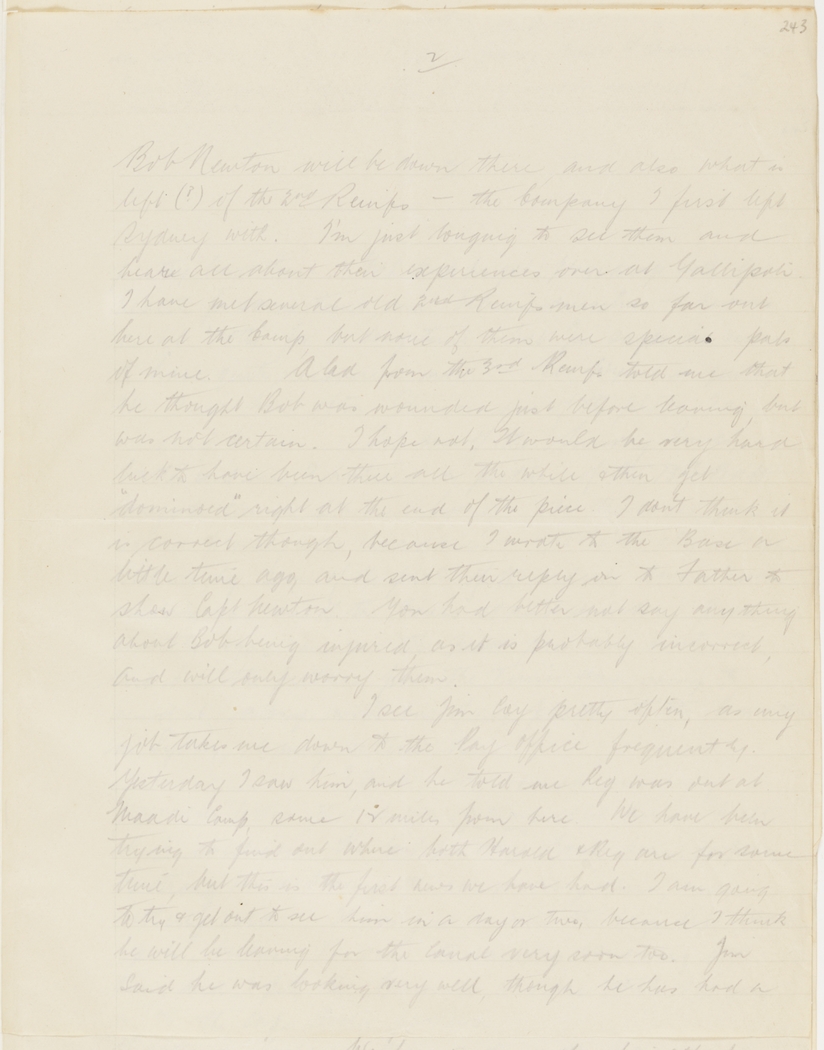 243
2
Bob Newton will be down there and also what is
left (?) of the 2nd Reinfs — the Company I first left
Sydney with. I'm just longing to see them and
hear all about their experiences over at Gallipoli.
I have met several old 2nd Reinfs men so far out
here at the Camp, but none of them were special pals
of mine. A lad from the 3rd Reinfs told me that
he thought Bob was wounded just before leaving, but
was not certain. I hope not. It would be very hard
luck to have been there all the while & then get
"dominoed" right at the end of the piece. I don't think it
is correct though, because I wrote to the Base a
little time ago, and sent their reply on to Father to
show Capt Newton. You had better not say anything
about Bob being injured, as it is probably incorrect,
and will only worry them.
I see Jim Coy pretty often, as my
job takes me down to the Pay Office frequently.
Yesterday I saw him, and he told me Reg was out at
Maadi Camp, some 12 miles from here. We have been
trying to find out where both Harold & Reg are for some
time, but this is the first news we have had. I am going
to try & get out to see him in a day or two, because I think
he will be leaving for the Canal very soon too. Jim
said he was looking very well, though he has had a